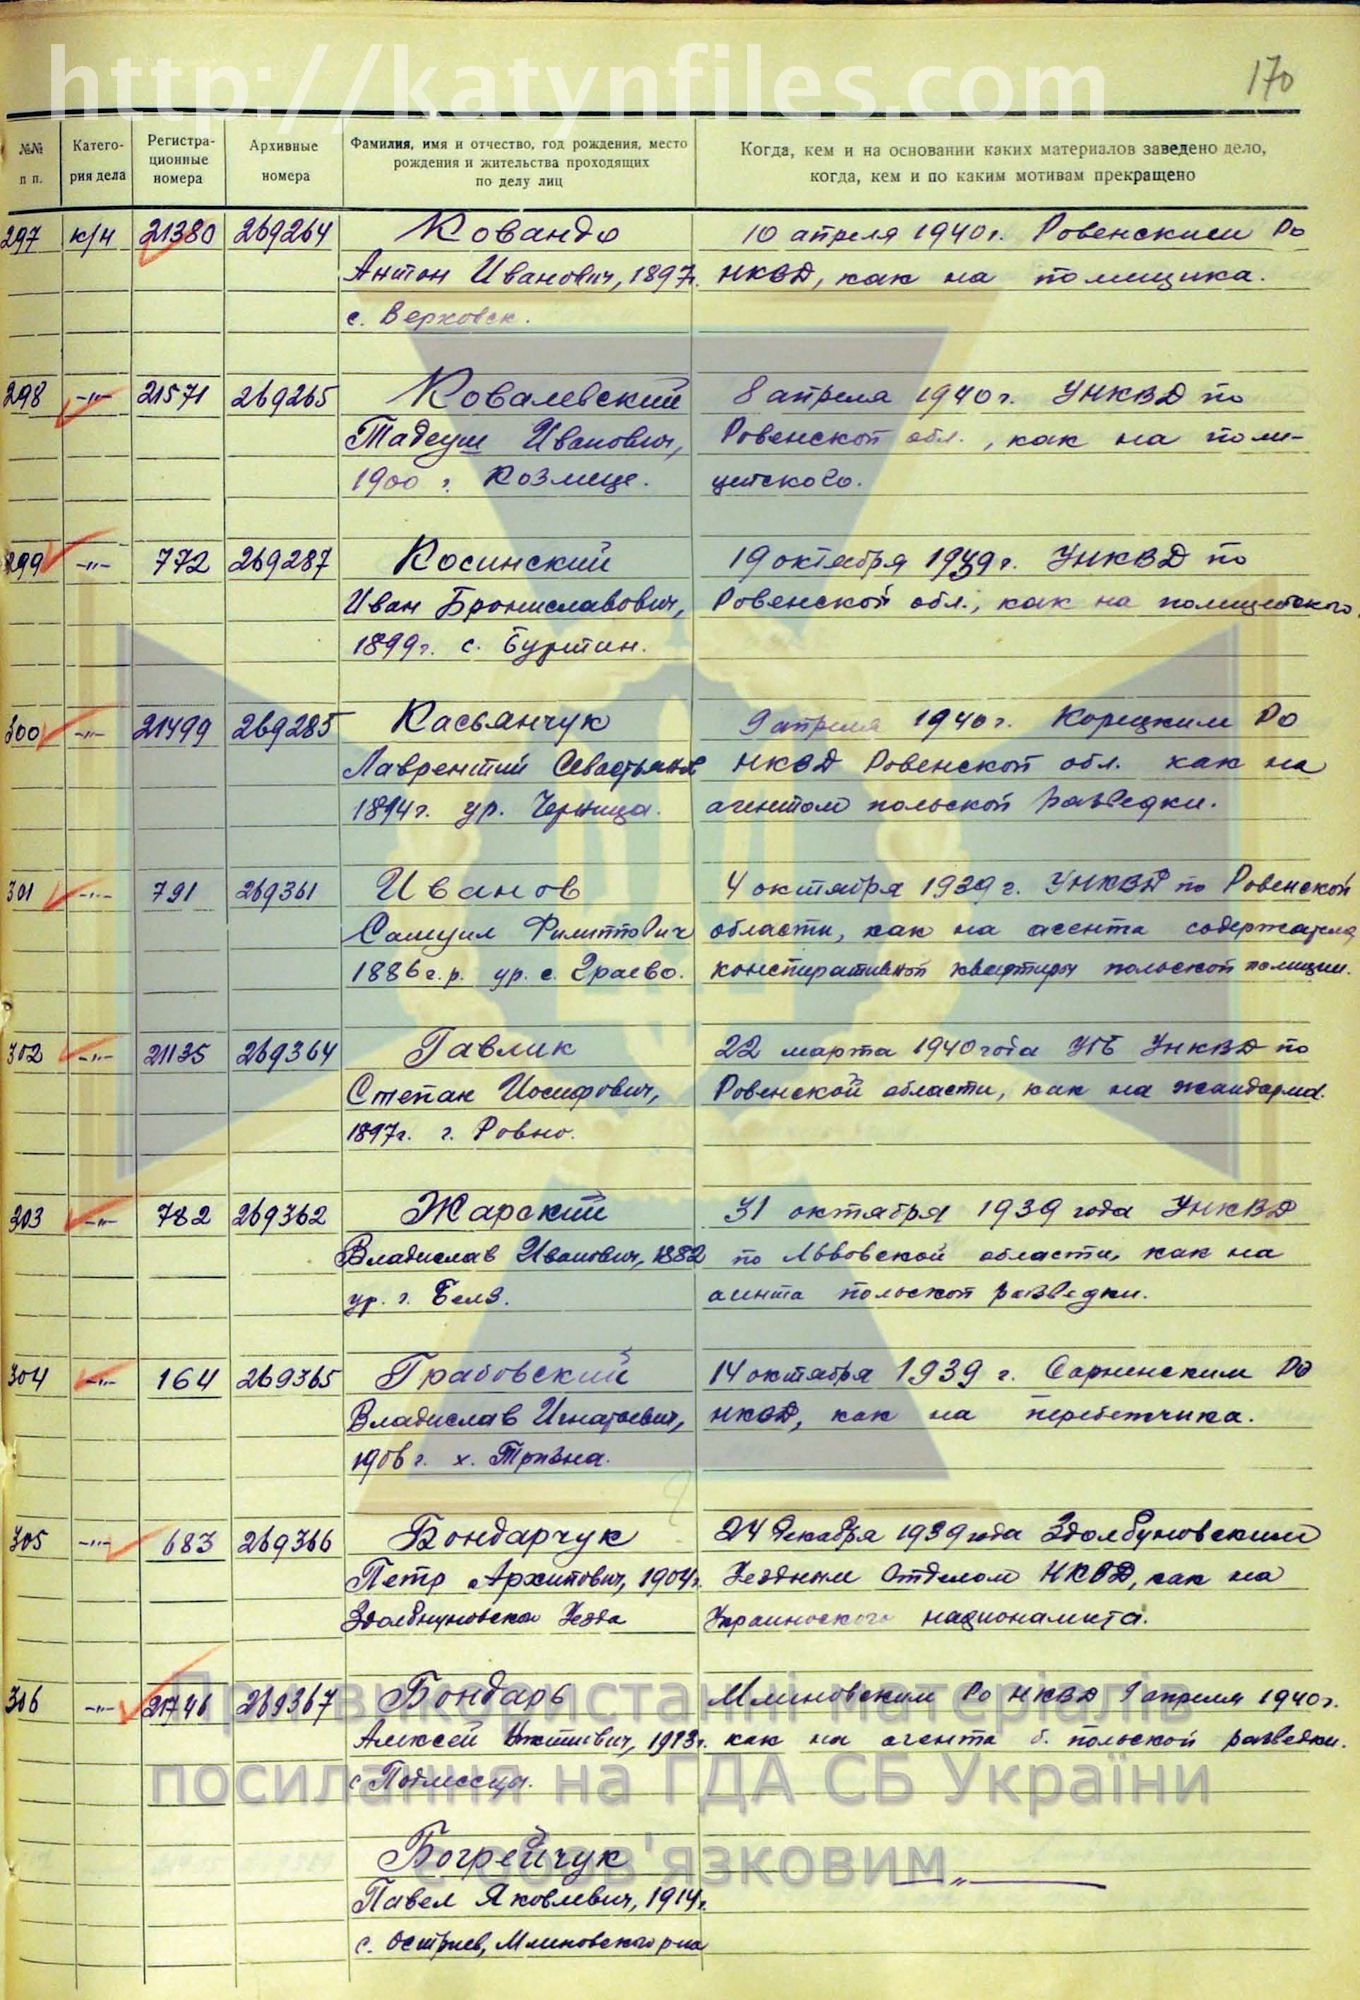 http://katynfiles.com
170
№№ п п.
Катего-
рия дела
Регистра-
ционные
номера
Архивные
номера
Фамилия, имя и отчество, год рождения, место
рождения и жительства проходящих
по делу лиц
Когда, кем и на основании каких материалов заведено дело,
когда, кем и по каким мотивам прекращено
297 к/н 21380 269264 Ковандо 10 апреля 1940г. Ровенским Ро
Антон Иванович, 1897г. НКВД, как на помещика.
с. Верховск.
298 -"- 21571 269265 Ковалевский 8 апреля 1940г. УНКВД по
Тадеуш Иванович, Ровенской обл., как на поли-
1900 г. Козмице. цейского.
299 -"- 772 269287 Косинский 19 октября 1939г. УНКВД по
Иван Брониславович, Ровенской обл., как на полицейского.
1899г. с. Буртин.
300 -"- 21499 269285 Касьянчук 9 апреля 1940г. Корецким Ро
Лаврентий НКВД Ровенской обл. как на
1894г. ур. Черница. агентом польской разведки.
301 -"- 791 269361 Иванов 4 октября 1939 г. УНКВД по Ровенской
Самуил Филиппович области, как на агента содержателя
1886 г.р. ур. с. Граево. конспиративной квартиры польской полиции.
302 -"- 21135 269364 Гавлик 22 марта 1940 года УГБ УНКВД по
Степан Иосифович, Ровенской области, как на жандарма.
1897г. г. Ровно.
303 -"- 782 269362 Жарский 31 октября 1939 года УНКВД
Владислав Иванович, 1882 по Львовской области, как на
ур. г. Белз. агента польской разведки.
304 -"- 164 269365 Грабовский 14 октября 1939 г. Сарненским Ро
Владислав Игнатьевич, НКВД, как на перебежчика.
1906 г. х. Тризна.
305 -"- 683 269366 Бондарчук 24 декабря 1939 года Здолбуновским
Петр Архипович, 1904г. Уездным Отделом НКВД, как на
Здолбуновского Уезда Украинского националиста.
306 -"- 21746 269367 Бондарь Млиновским Ро НКВД 9 апреля 1940г.
Алексей 1913г. как на агента б. польской разведки.
с Подлесцы.
Богрейчук -"-
Павел Яковлевич, 1914г.
с. Остриев, Млиновского р-на
При використанні матеріалів
посилання на ГДА СБ України
є обов'язковим